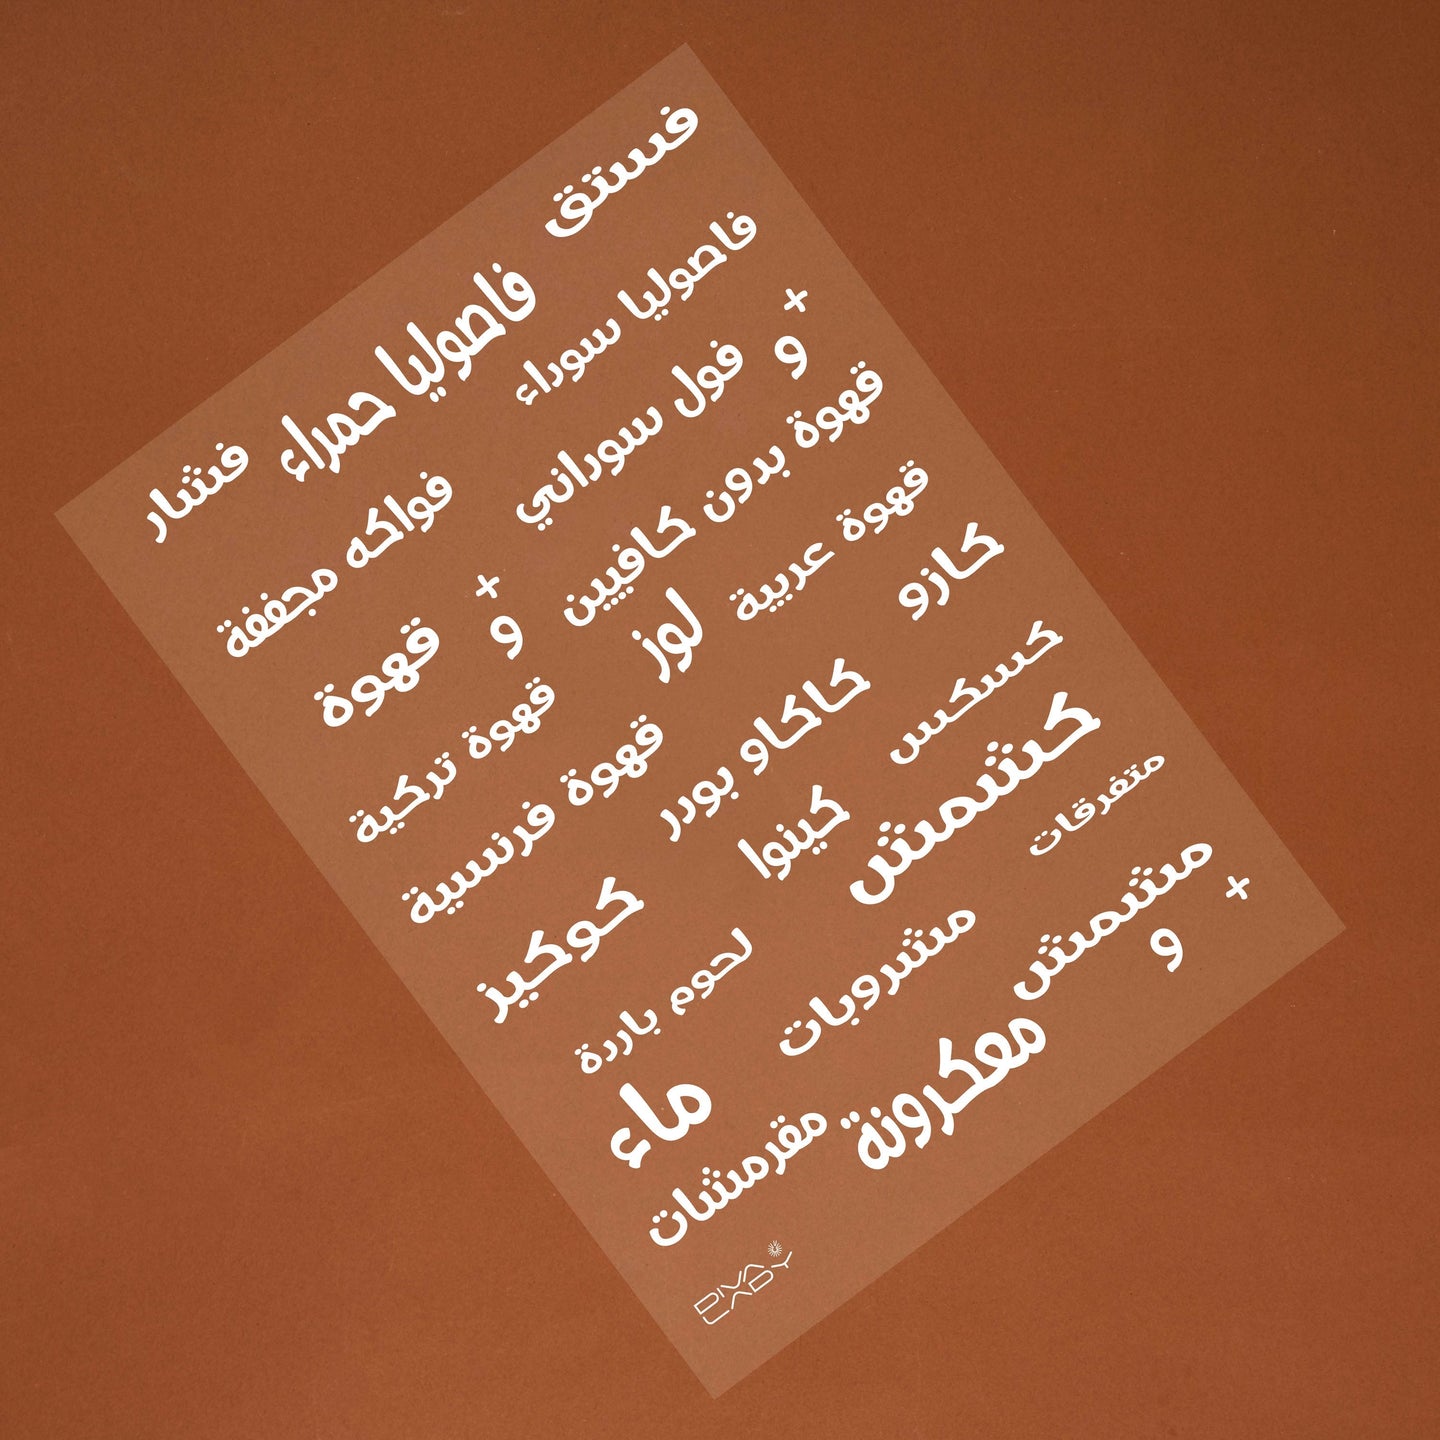 فستق
فاصوليا حمراء
فشار
فاصوليا سوداء
+
و
فول سوداني
فواكه مجففة
قهوة بدون كافيين
+
و
قهوة
قهوة عربية
لوز
قهوة تركية
كازو
كاكاو بودر
قهوة فرنسية
كسكس
كينوا
كوكيز
كشمش
لحوم باردة
متفرقات
مشروبات
ماء
مشمش
+
و
معكرونة
مقرمشات
DIVA
LADY